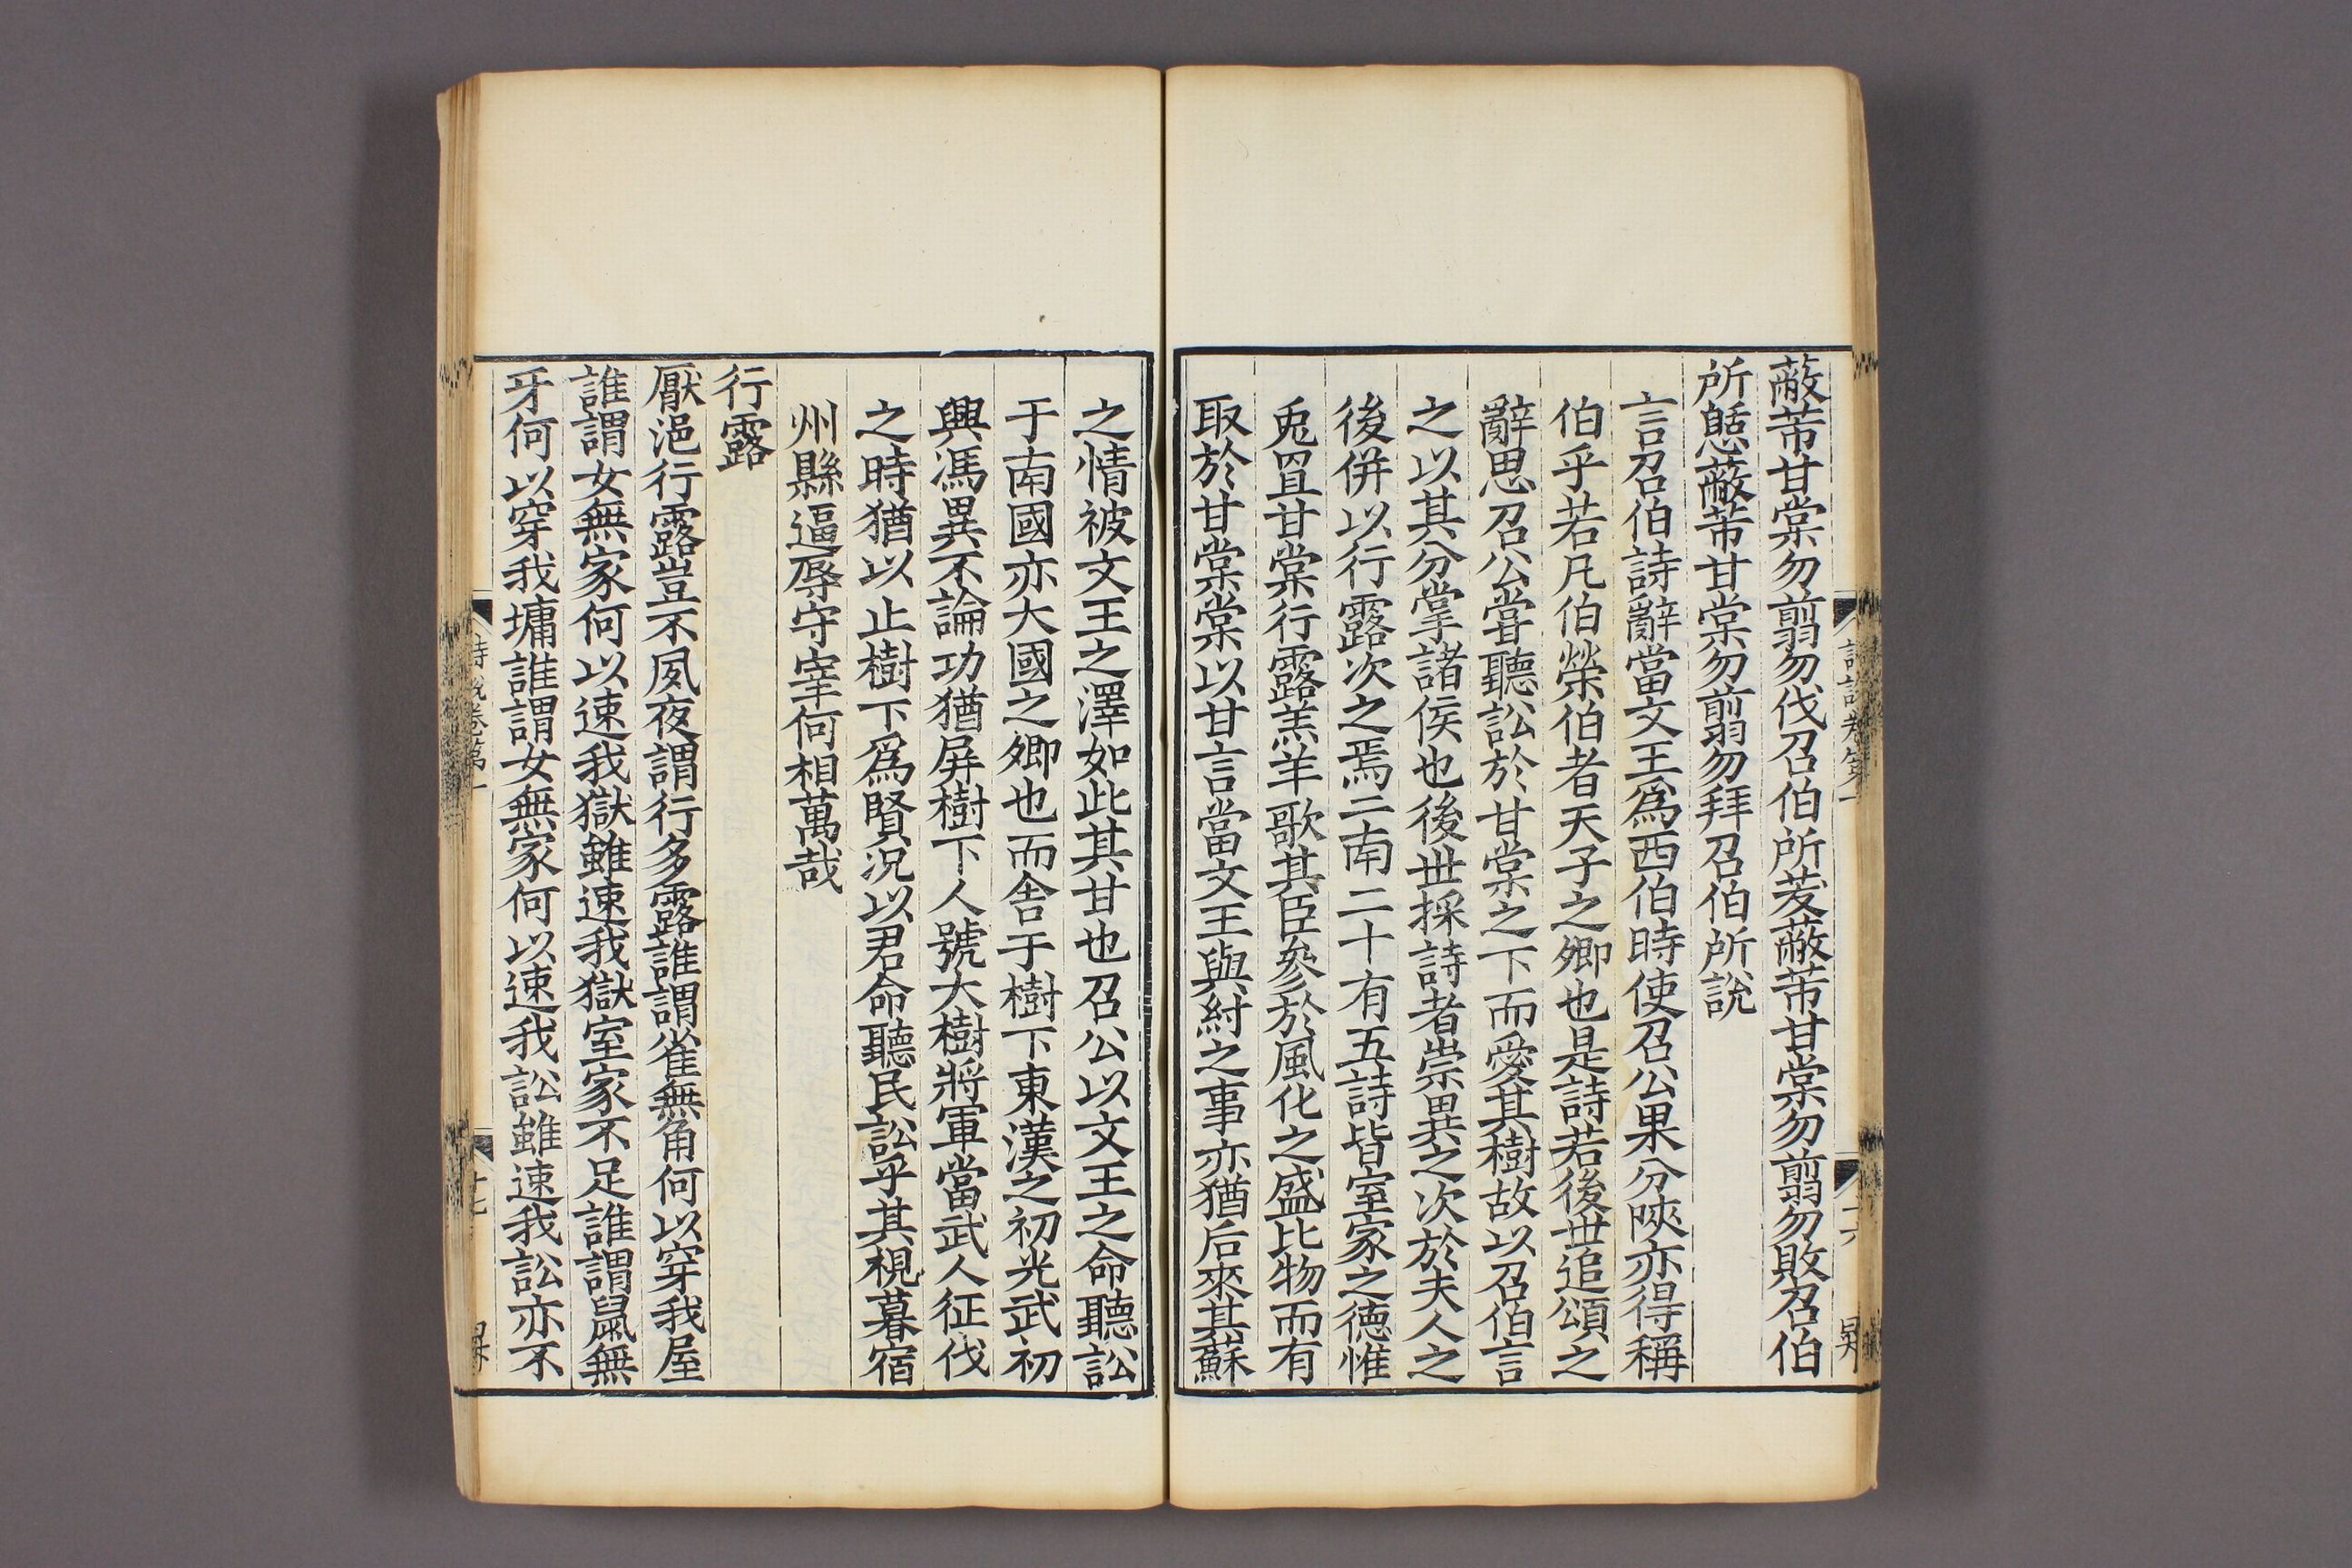 蔽芾甘棠勿翦勿伐召伯所茇蔽芾甘棠勿翦勿敗召伯
所憩蔽芾甘棠勿翦勿拜召伯所說
言召伯詩辭當文王爲西伯時使召公果分陝亦得稱
伯乎若凡伯榮伯者天子之卿也是詩若後世追頌之
辭思召公甞聽訟於甘棠之下而愛其樹故以召伯言
之以其分掌諸侯也後世採詩者崇異之次於夫人之
後併以行露次之焉二南二十有五詩皆室家之德惟
兎罝甘棠行露羔羊歌其臣參於風化之盛比物而有
取於甘棠棠以甘言當文王與紂之事亦猶后來其蘇
之情被文王之澤如此其甘也召公以文王之命聽訟
于南國亦大國之卿也而舍于樹下東漢之初光武初
興馮異不論功猶屏樹下人號大樹將軍當武人征伐
之時猶以止樹下爲賢况以君命聽民訟乎其視暮宿
州縣逼辱守宰何相萬哉
行露
厭浥行露豈不夙夜謂行多露誰謂雀無角何以穿我屋
誰謂女無家何以速我獄雖速我獄室家不足誰謂鼠無
牙何以穿我墉誰謂女無家何以速我訟雖速我訟亦不